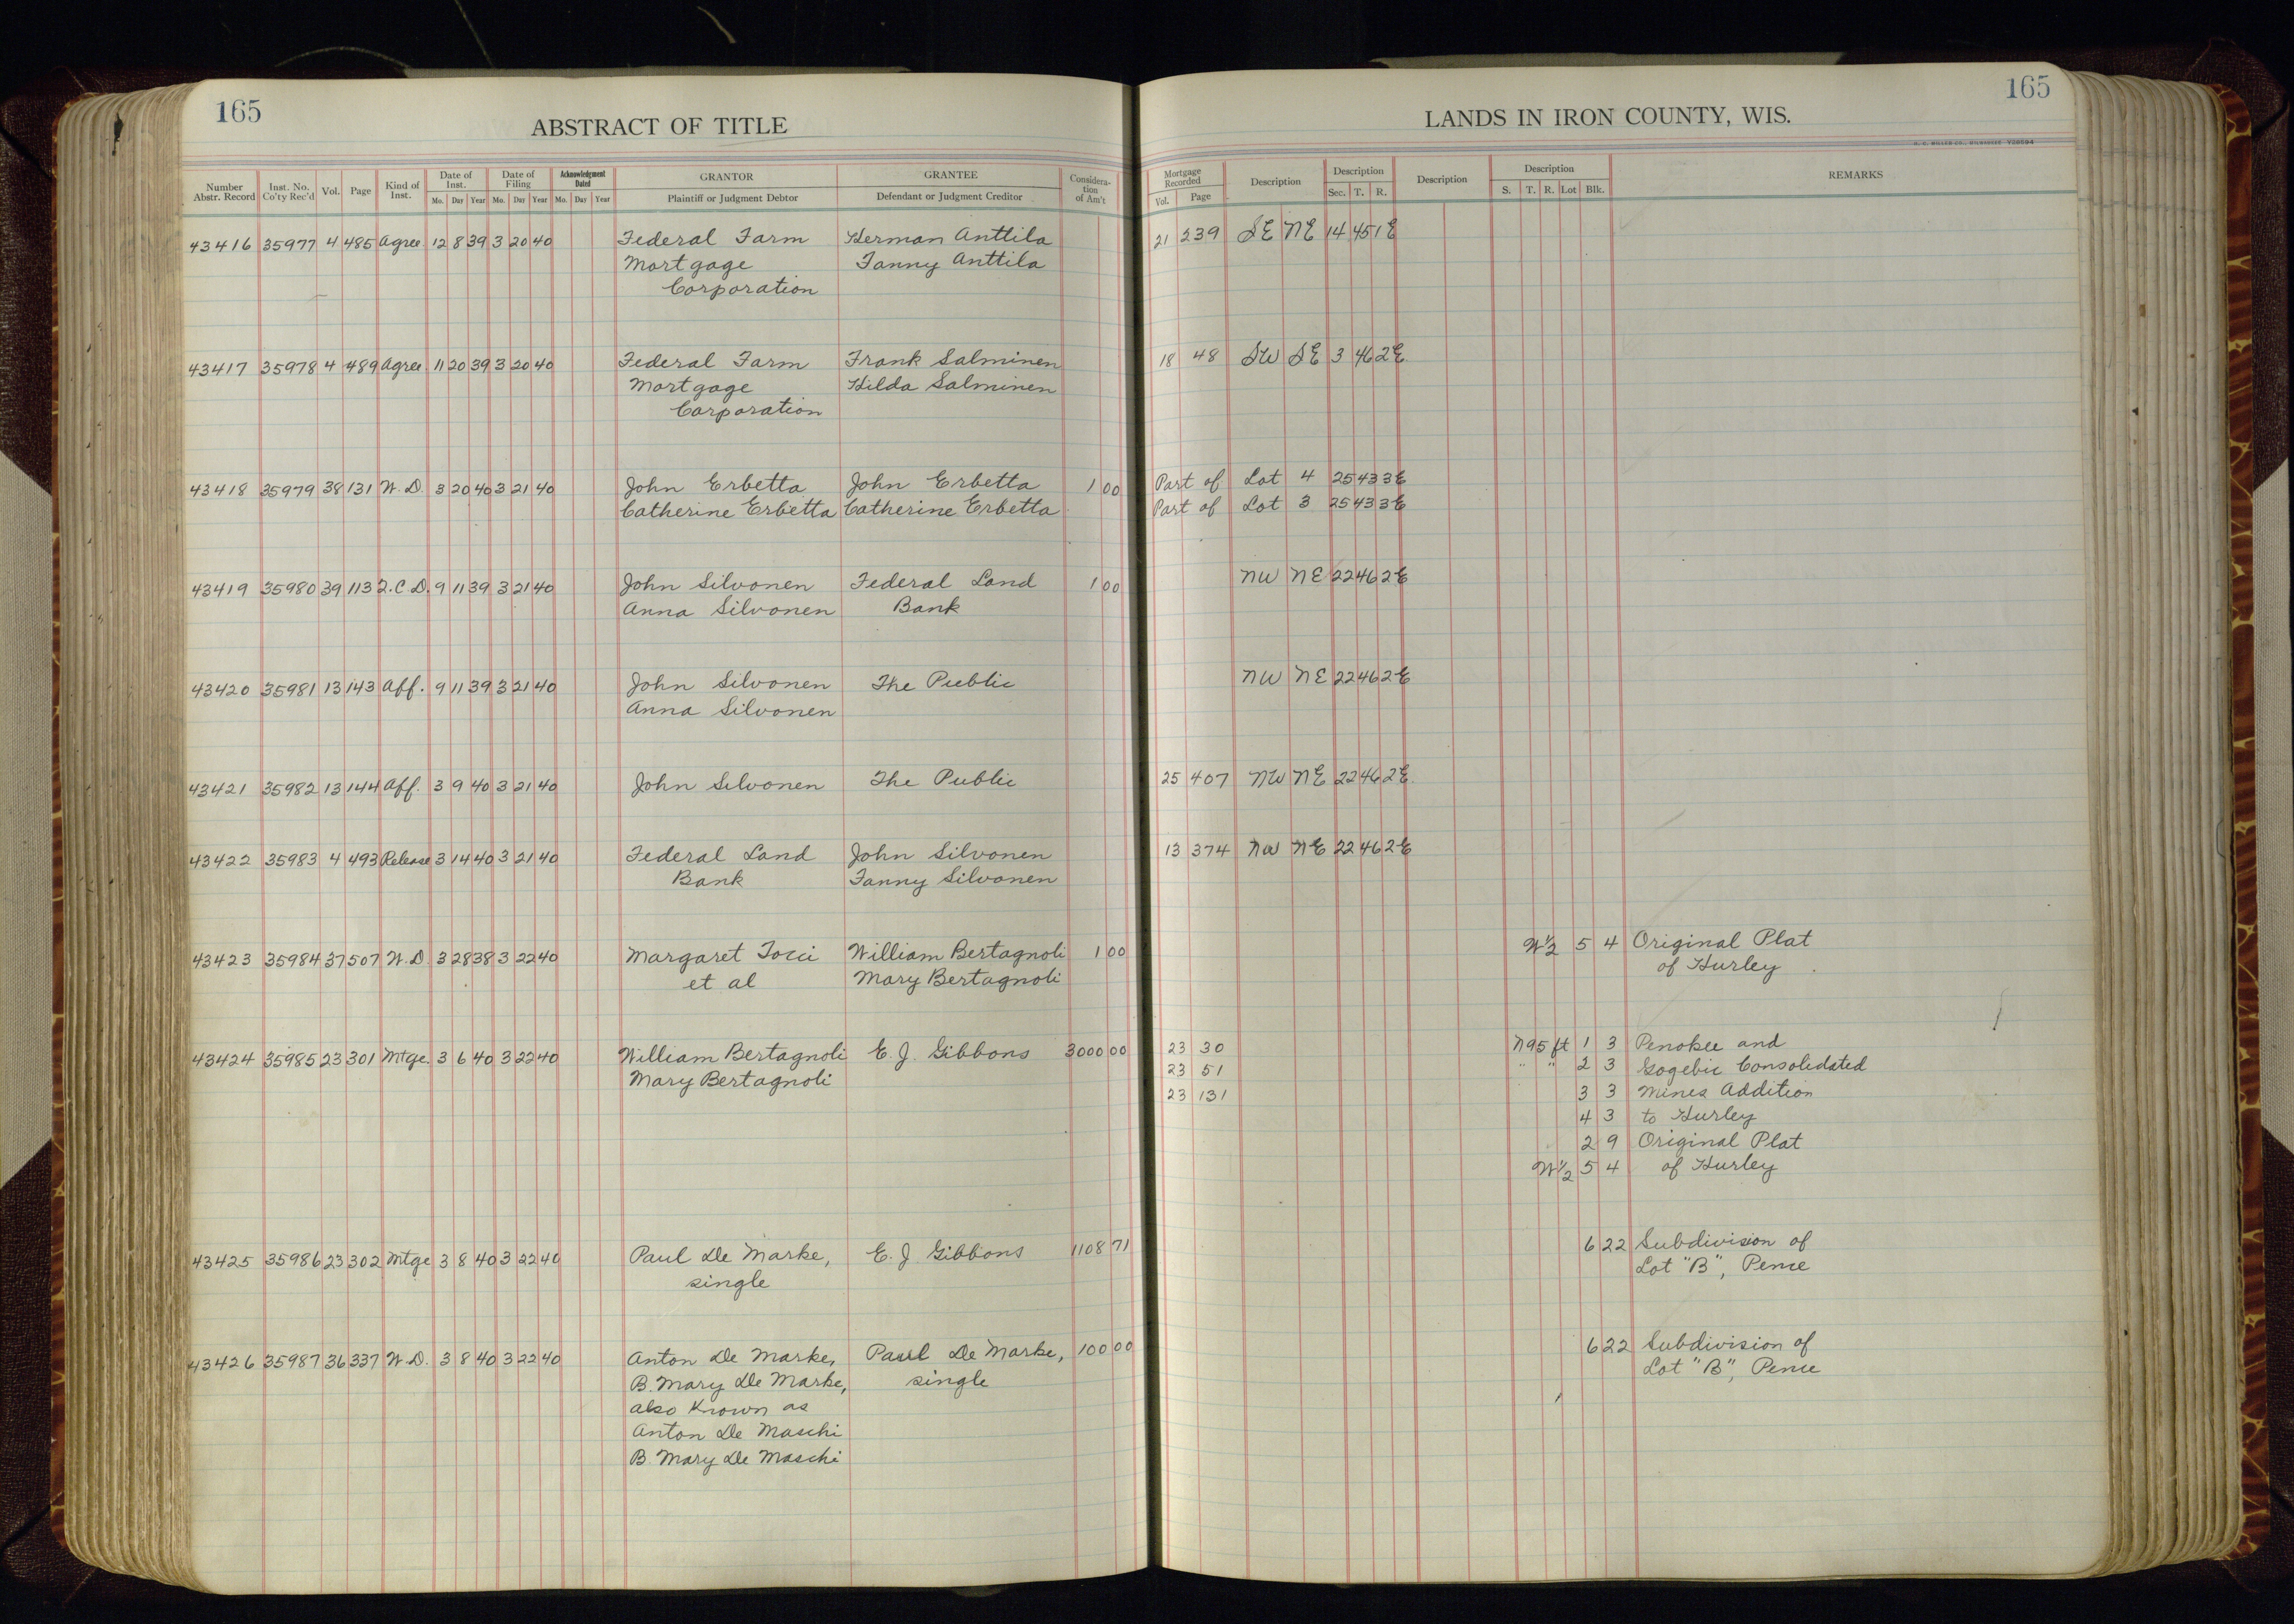 165
ABSTRACT OF TITLE
Number Abstr. Record Inst. No. Co'ty Rec'd Vol. Page Kind of Inst. Date of Inst. Mo. Day Year Date of Filing Mo. Day Year Acknowledgment Dated Mo. Day Year GRANTOR Plaintiff or Judgment Debtor GRANTEE Defendant or Judgment Creditor Considera-tion of Am't
43416 35977 4 485 Agree. 12 8 39 3 20 40 Federal Farm Herman Anttila
Mortgage Fanny Anttila
Corporation
43417 35978 4 489 Agree. 11 20 39 3 20 40 Federal Farm Frank Salminen
Mortgage Hilda Salminen
Corporation
43418 35979 38 131 W.D. 3 20 40 3 21 40 John Erbetta John Erbetta 1 00
Catherine Erbetta Catherine Erbetta
43419 35980 39 113 Q.C.D. 9 11 39 3 21 40 John Silvonen Federal Land 1 00
Anna Silvonen Bank
43420 35981 13 143 Aff. 9 11 39 3 21 40 John Silvonen The Public
Anna Silvonen
43421 35982 13 144 Aff. 3 9 40 3 21 40 John Silvonen The Public
43422 35983 4 493 Release 3 14 40 3 21 40 Federal Land John Silvonen
Bank Fanny Silvonen
43423 35984 37 507 W.D. 3 28 38 3 22 40 Margaret Tocci William Bertagnoli 1 00
et al Mary Bertagnoli
43424 35985 23 301 Mtge. 3 6 40 3 22 40 William Bertagnoli E. J. Gibbons 3000 00
Mary Bertagnoli
43425 35986 23 302 Mtge 3 8 40 3 22 40 Paul De Marke, E. J. Gibbons 1108 71
single
43426 35987 36 337 W.D. 3 8 40 3 22 40 Anton De Marke, Paul De Marke, 100 00
B. Mary De Marke, single
also Known as
Anton De Maschi
B. Mary De Maschi
165
LANDS IN IRON COUNTY, WIS.
H. C. MILLER CO., MILWAUKEE
Mortgage Recorded Vol. Page Description Description Sec. T. R. Description Description S. T. R. Lot Blk. REMARKS
21 239 SE NE 14 45 1E
18 48 SW SE 3 46 2E
Part of Lot 4 25 43 3E
Part of Lot 3 25 43 3E
NW NE 22 46 2E
NW NE 22 46 2E
25 407 NW NE 22 46 2E
13 374 NW NE 22 46 2E
W½ 5 4 Original Plat
of Hurley
23 30 N95 ft 1 3 Penokee and
23 51 " " 2 3 Gogebic Consolidated
23 131 3 3 Mines Addition
4 3 to Hurley
2 9 Original Plat
W½ 5 4 of Hurley
6 22 Subdivision of
Lot "B", Pence
6 22 Subdivision of
Lot "B", Pence